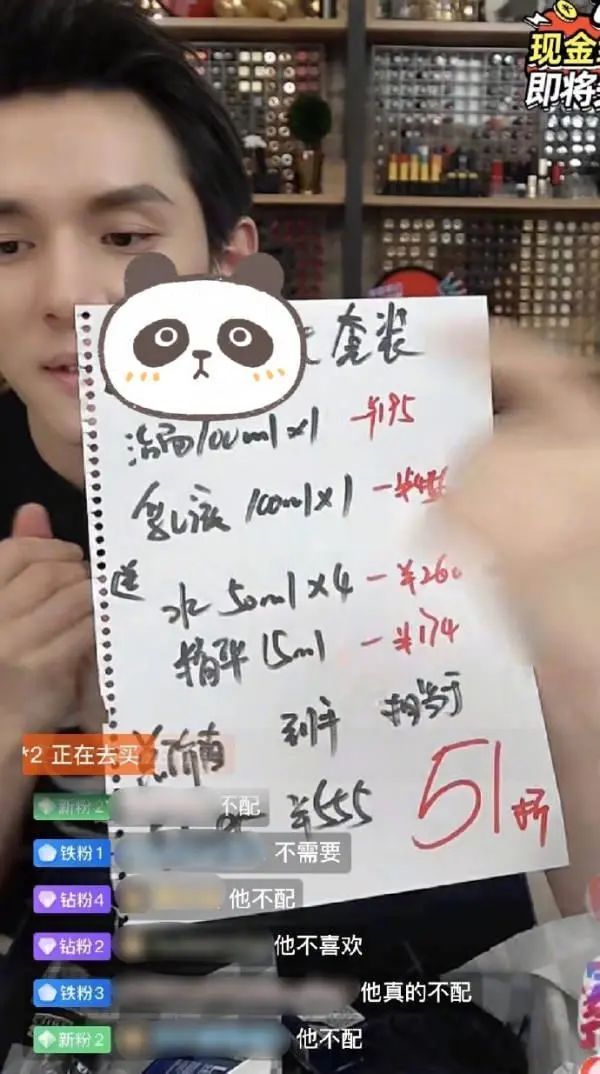 现金
即将
套装
洁面100ml×1 —¥195
乳液 100ml×1
送 水 50ml×4 —¥260
精华 15ml —¥174
总价值 到手 相当于
¥555 51折
*2 正在去买
新粉 2 不配
铁粉 1 不需要
钻粉 4 他不配
钻粉 2 他不喜欢
铁粉 3 他真的不配
新粉 2 他不配